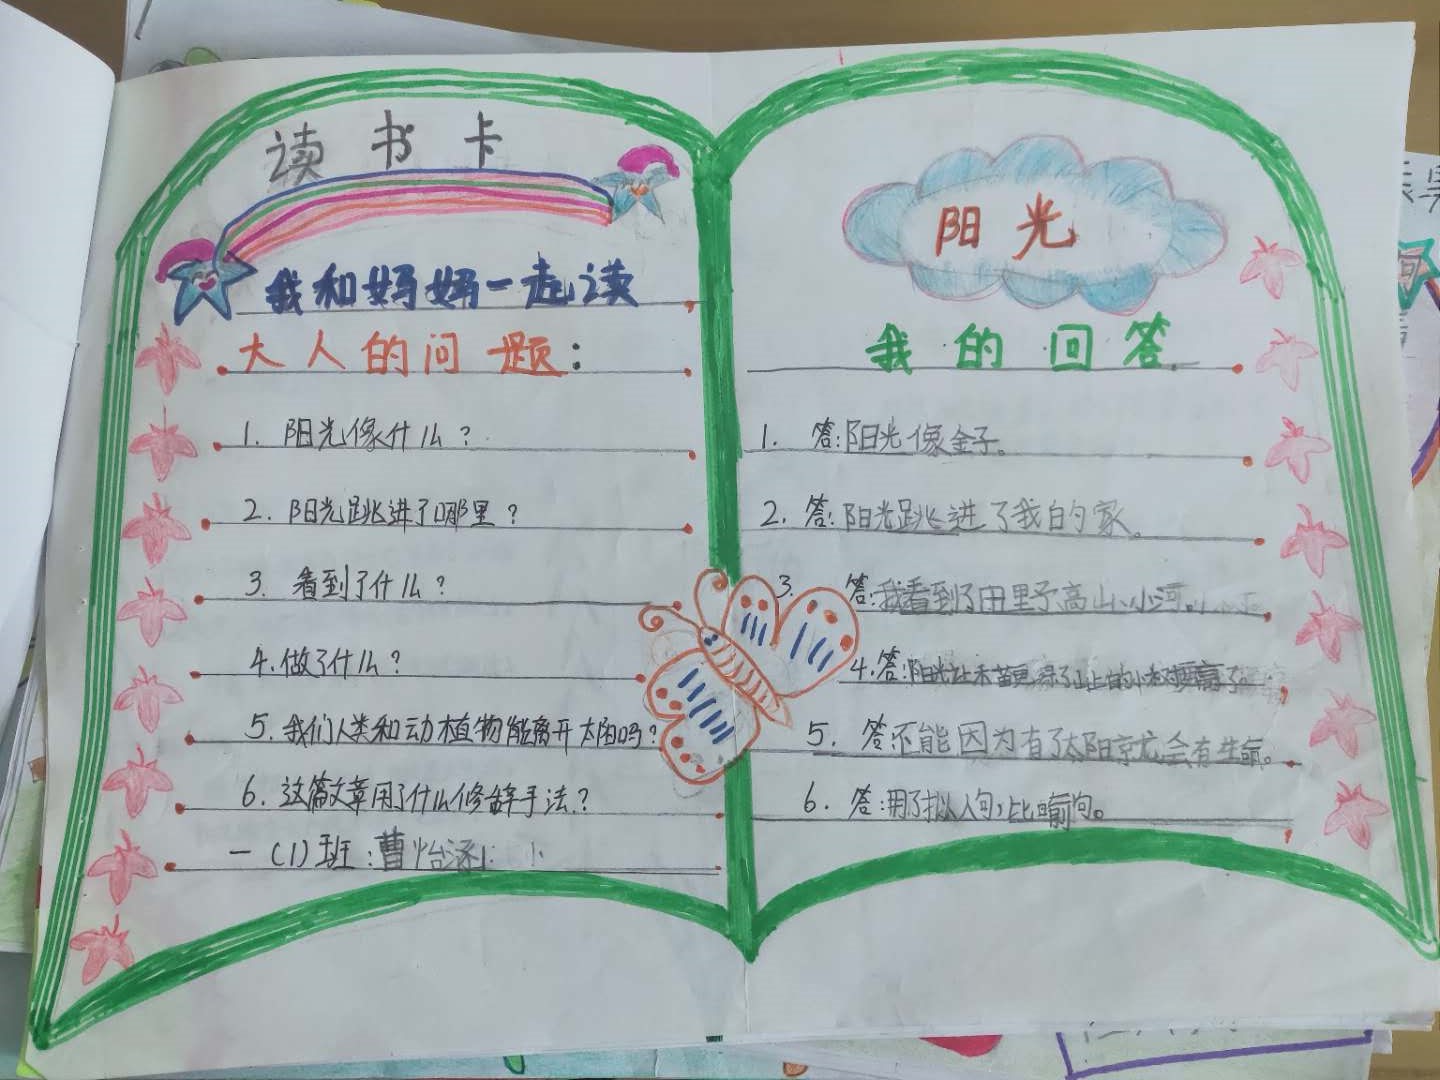 读书卡
我和妈妈一起读
大人的问题:
1. 阳光像什么?
2. 阳光跳进了哪里?
3. 看到了什么?
4. 做了什么?
5. 我们人类和动植物能离开太阳吗?
6. 这篇文章用了什么修辞手法?
一(1)班:曹怡涵
阳光
我的回答
1. 答:阳光像金子。
2. 答:阳光跳进了我的家。
3. 答:我看到了田里予高山、小河。
4. 答:阳光让禾苗更绿了山上的小树更高了。
5. 答不能因为有了太阳京尤会有生命。
6. 答:用了拟人句,比喻句。